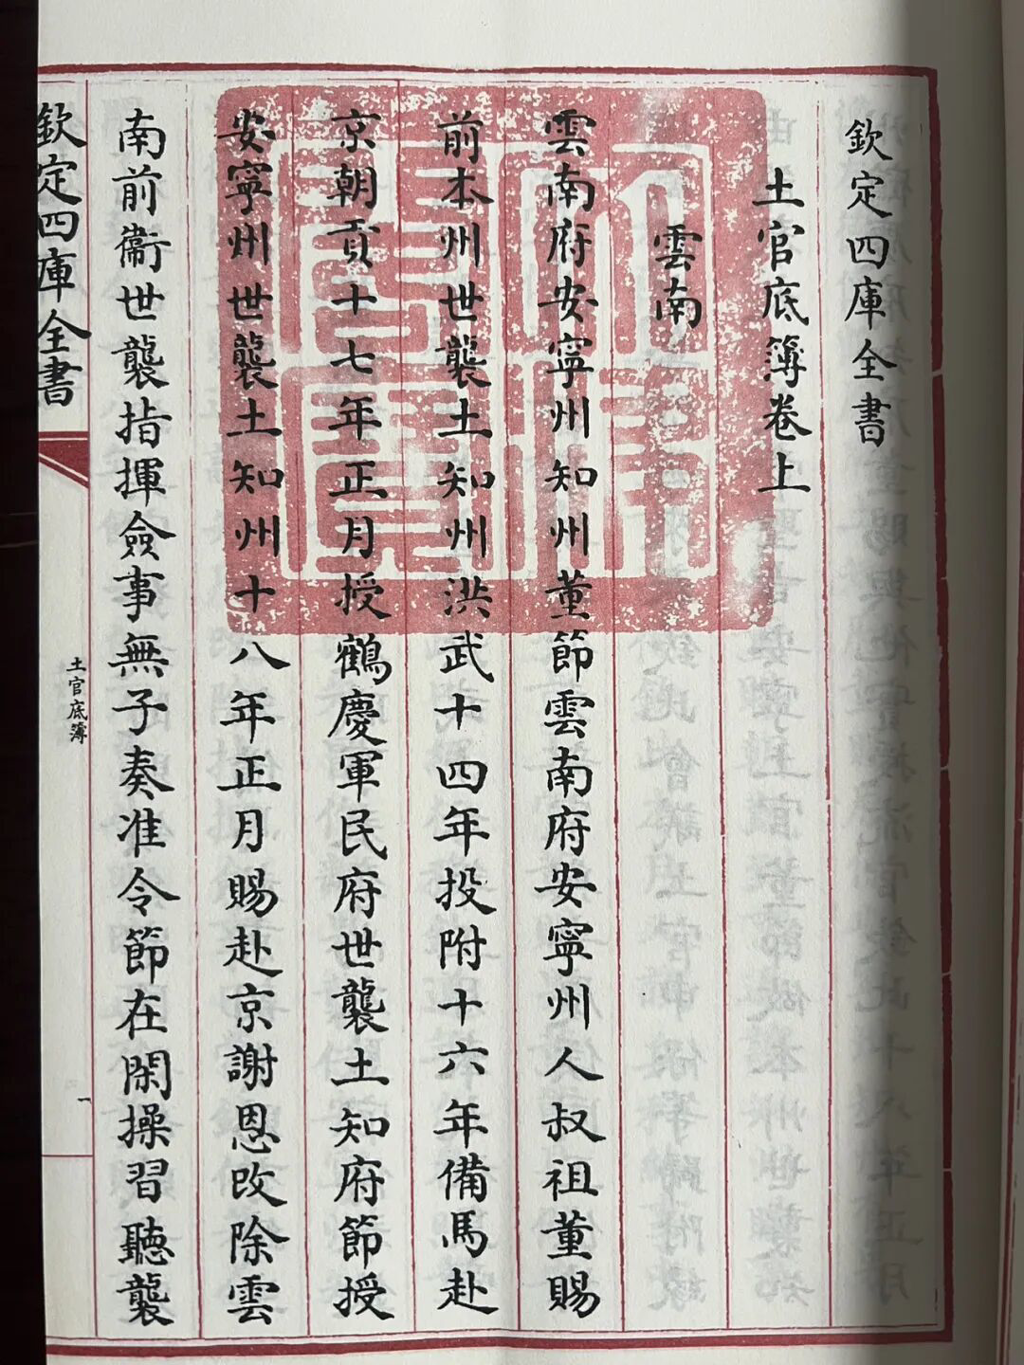 欽定四庫全書
土官底簿卷上
雲南
雲南府安寧州知州董節雲南府安寧州人叔祖董賜
前本州世襲土知州洪武十四年投附十六年備馬赴
京朝貢十七年正月授鶴慶軍民府世襲土知府節授
安寧州世襲土知州十八年正月賜赴京謝恩改除雲
南前衞世襲指揮僉事無子奏准令節在閑操習聽襲
欽定四庫全書
土官底簿
一